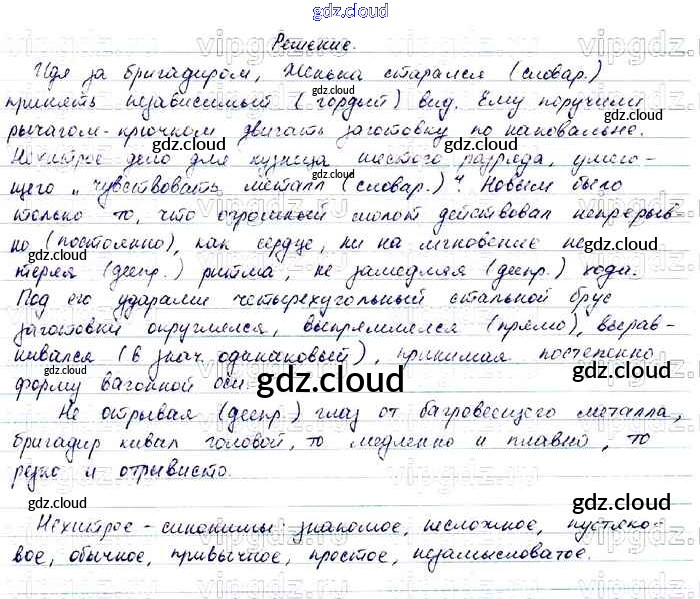 gdz.cloud
Решение.
Идя за бригадиром, Женька старался (словар.)
принять независимый (гордый) вид. Ему поручили
рычагом-крючком двигать заготовку по наковальне.
Нехитрое дело для кузнеца шестого разряда, умею-
щего „чувствовать металл (словар.)“. Новым было
только то, что огромный молот действовал непрерыв-
но (постоянно), как сердце, ни на мгновение не
теряя (деепр.) ритма, не замедляя (деепр.) хода.
Под его ударами четырехугольный стальной брус
заготовки округлялся, выпрямлялся (прямо), вырав-
нивался (в знач. одинаковый), принимая постепенно
форму вагонной оси.
Не отрывая (деепр.) глаз от багровеющего металла,
бригадир кивал головой, то медленно и плавно, то
резко и отрывисто.
Нехитрое - синонимы: знакомое, несложное, пустяко-
вое, обычное, привычное, простое, незамысловатое.